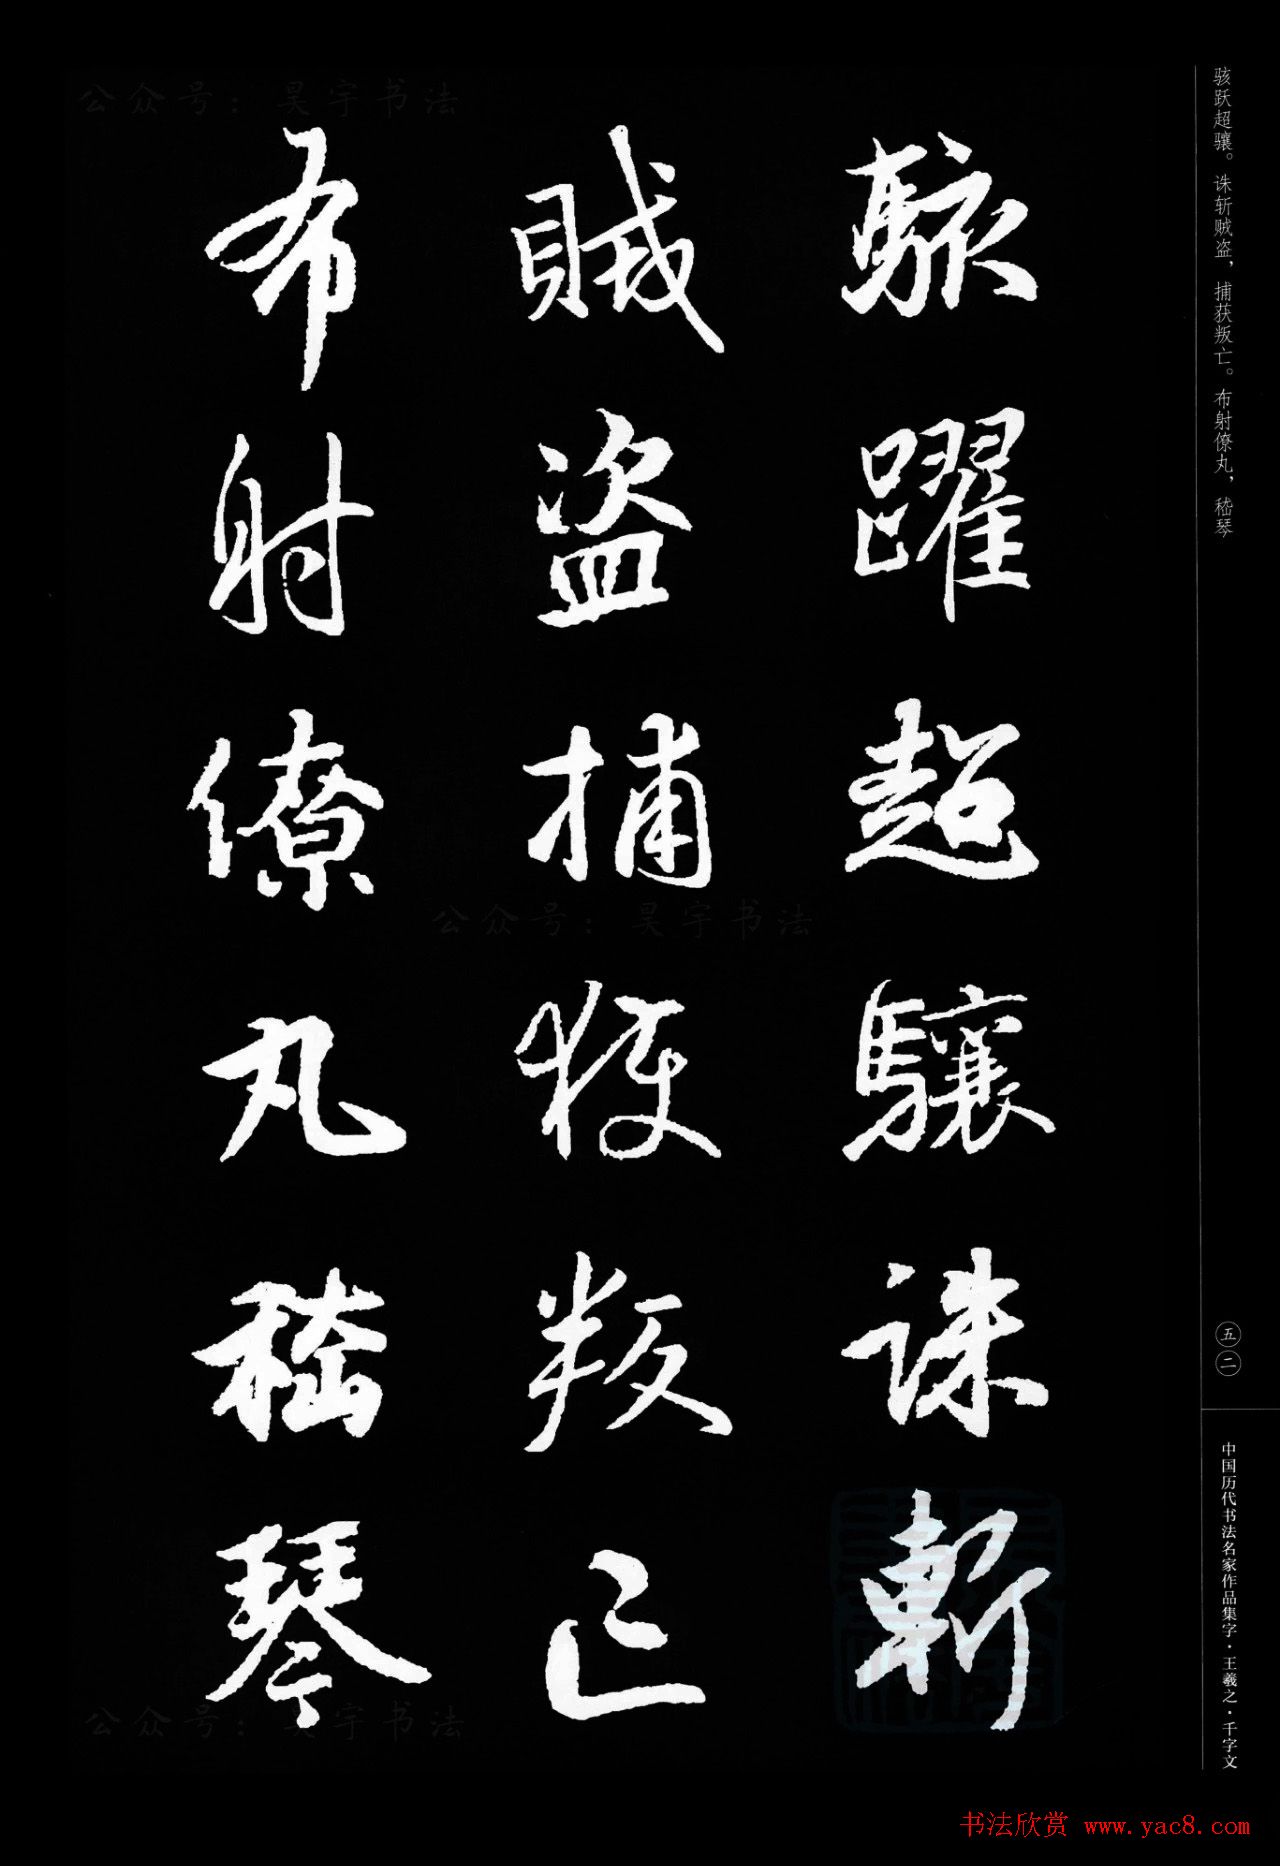 骇跃超骧。诛斩贼盗，捕获叛亡。布射僚丸，嵇琴
駭躍超驤誅斬
賊盜捕獲叛亡
布射僚丸嵇琴
五二
中国历代书法名家作品集字·王羲之·千字文
公众号：昊宇书法
公众号：昊宇书法
公众号：昊宇书法
书法欣赏 www.yac8.com